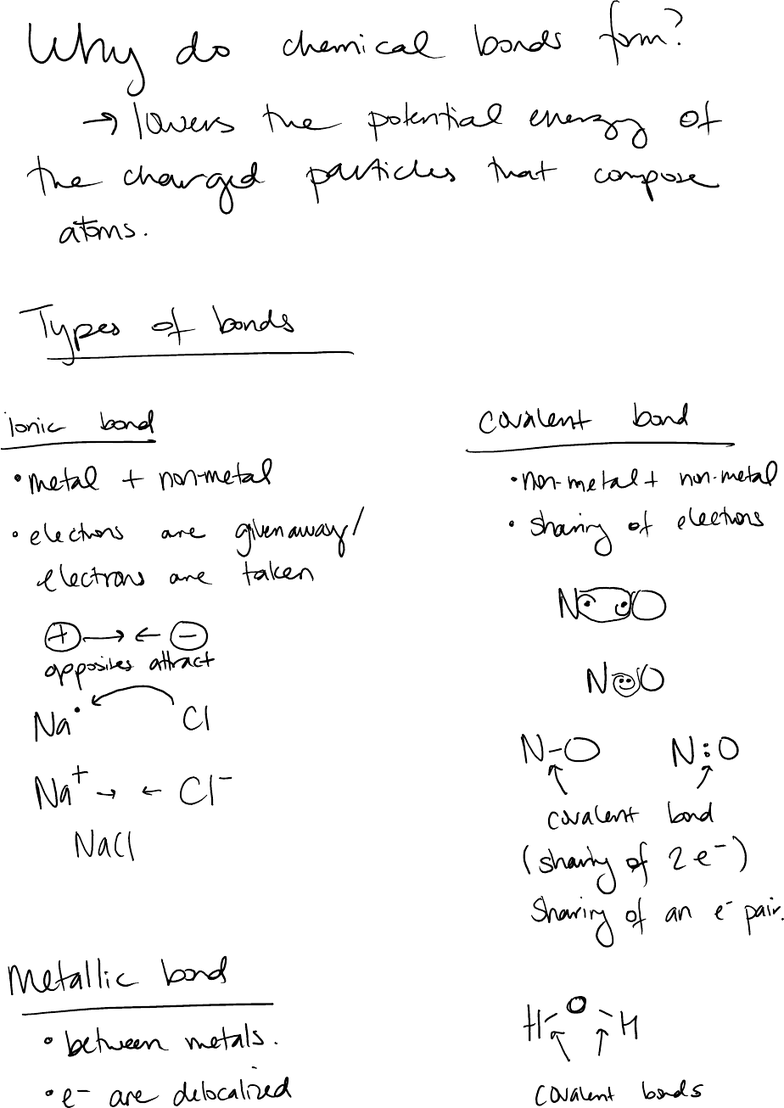 Why do chemical bonds form?
→ lowers the potential energy of
the charged particles that compose
atoms.
Types of bonds
ionic bond
• metal + non-metal
• electrons are given away/
electrons are taken
+ → ← −
opposites attract
Na• Cl
Na⁺ → ← Cl⁻
NaCl
covalent bond
• non-metal + non-metal
• sharing of electrons
N • • O
N : O
N-O N:O
covalent bond
(sharing of 2 e⁻)
Sharing of an e⁻ pair.
H-O-H
covalent bonds
Metallic bond
• between metals.
• e⁻ are delocalized